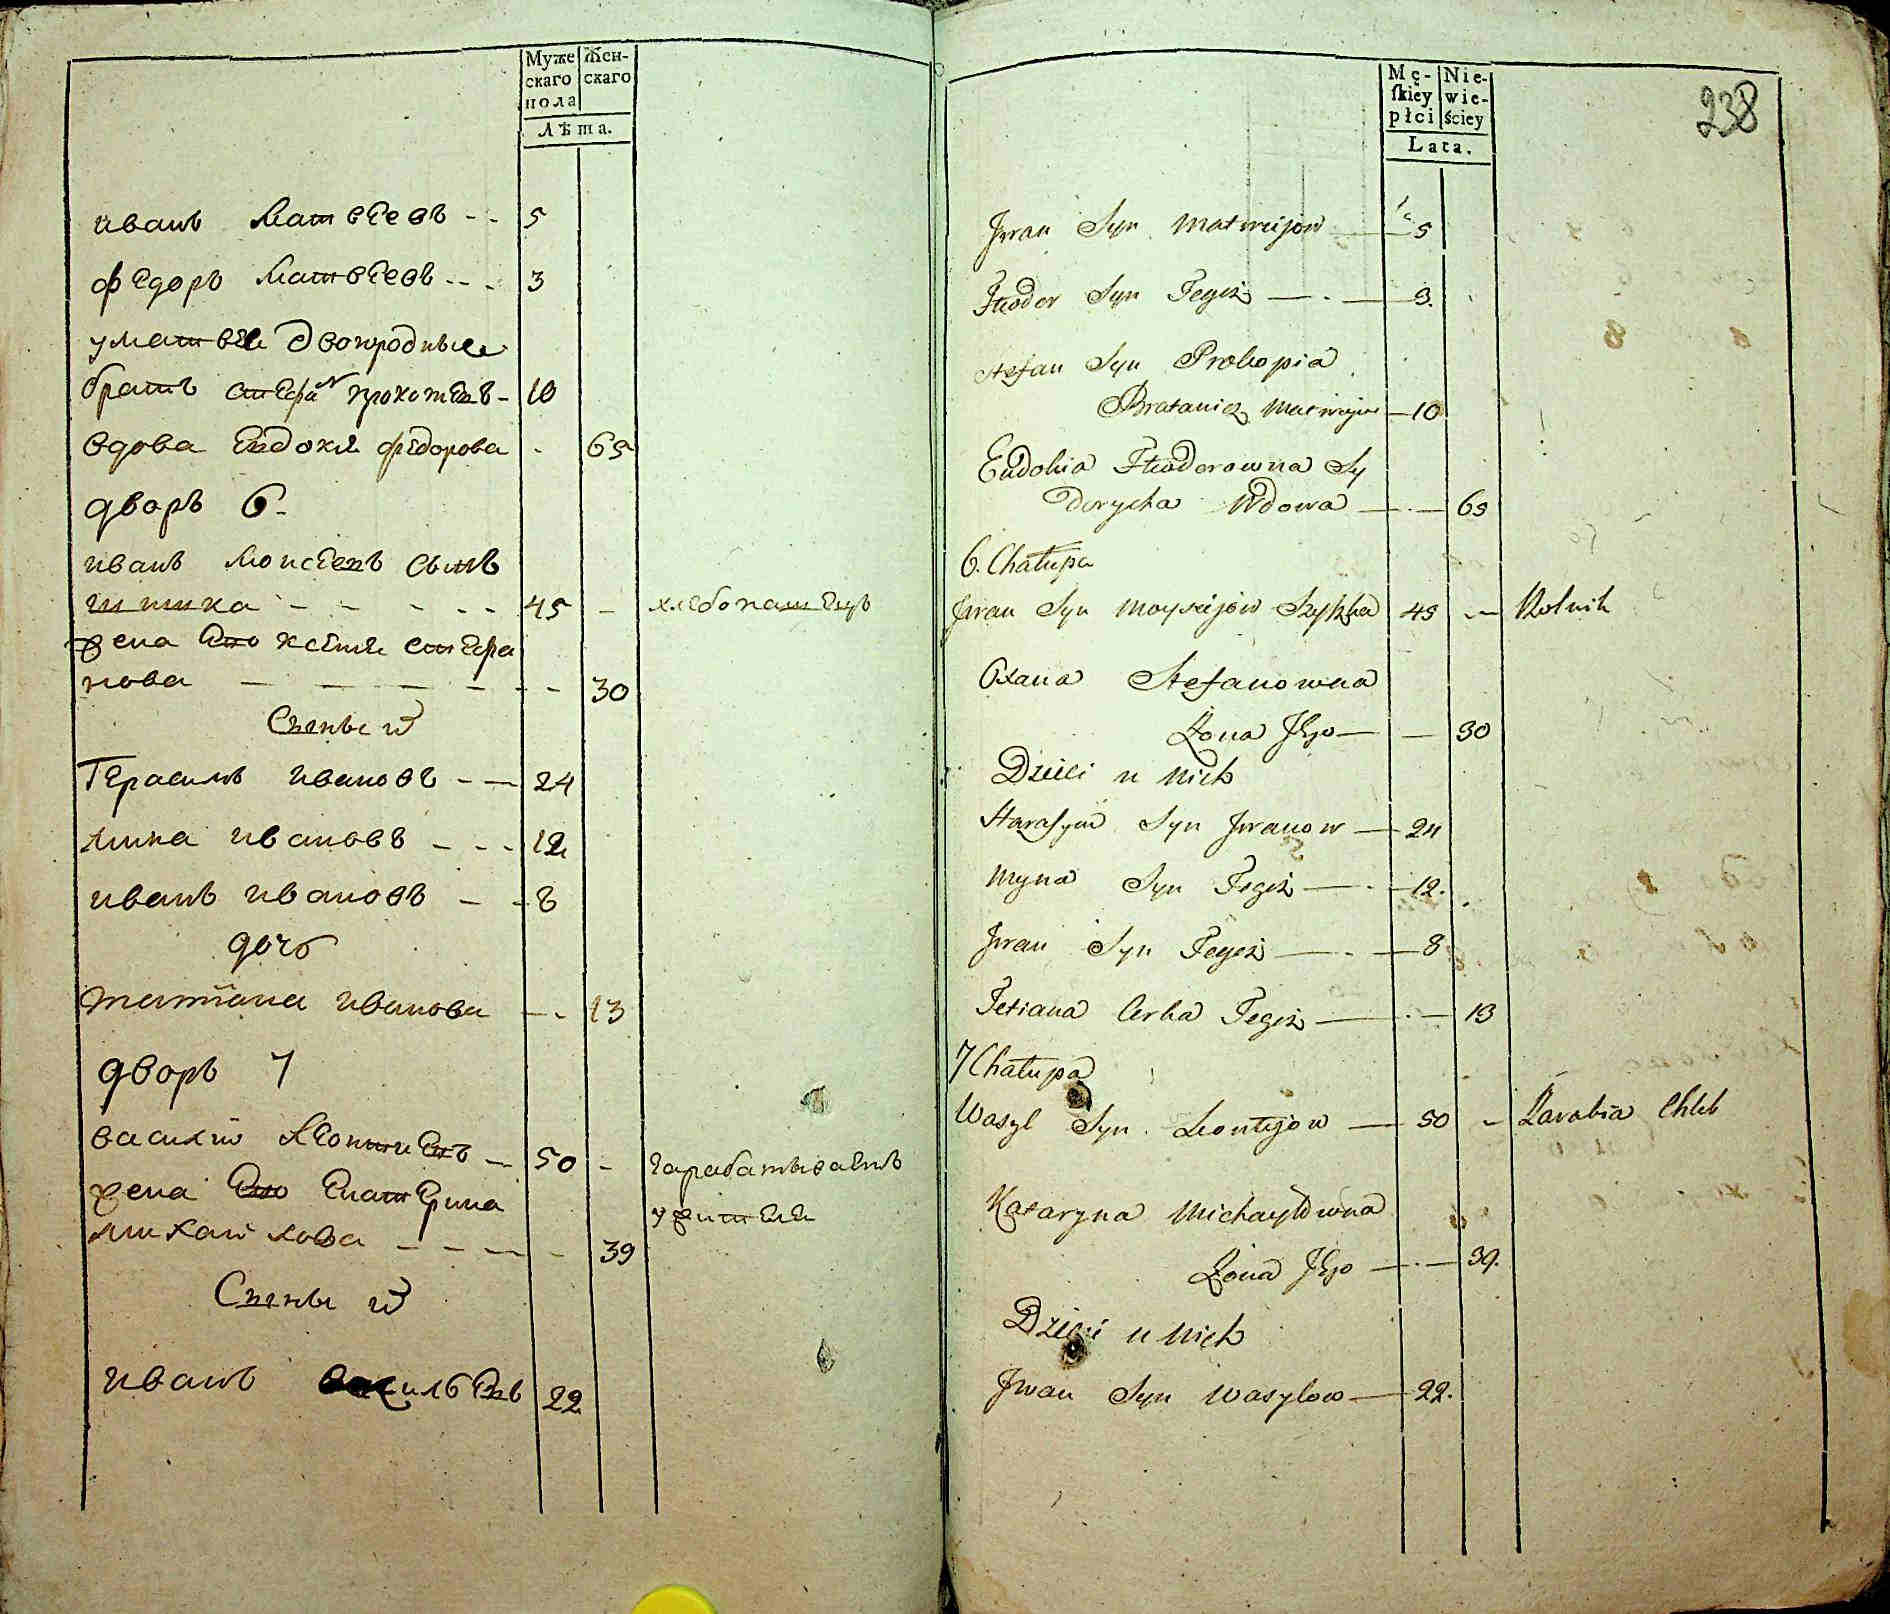 Муже
скаго
пола
Жен-
скаго
Лѣта.
иванъ Матвеевъ - - 5
федоръ Матвеевъ - - - 3
уматвея двоюродные
братъ стефанъ прокопевъ - 10
вдова Евдокия федорова - 65
дворъ 6
иванъ Моисеевъ сынъ
шишка - - - - - 45 - хлебопашецъ
жена Ево ксения стефа
нова - - - - - - 30
Сыны ихъ
Герасимъ ивановъ - - 24
мина ивановъ - - - 12
иванъ ивановъ - - 8
дочь
татиана иванова - - 13
дворъ 7
василий Леонтиевъ - 50 - зарабатываетъ
жена Ево Екатерина
михайлова - - - - - 39
Сыны ихъ
иванъ васильевъ 22
Mę-
ſkiey
płci
Nie-
wie-
ściey
Lata.
238
Jwan Syn Matwiejow 5
Fteodor Syn Tegoż — . — 3.
Stefan Syn Prokopia
Bratanicz Matwieja — 10
Eudokia Fteodorowna Sy
dorycha Wdowa — . — 65
6. Chałupa
Jwan Syn Moysiejow Szyszka 45 - — Rolnik
Oxana Stefanowna
Żona Jego — — 30
Dzieci u nich
Harasym Syn Jwanow — 24
Myna Syn Tegoż — . — 12.
Jwan Syn Tegoż — . — 8
Tetiana Corka Tegoż — . — 13
7 Chałupa
Wasyl Syn Leontejow — 50 - Zarabia Chleb
Kataryna Michayłowna
Żona Jego — . — 39.
Dzieci u nich
Jwan Syn Wasylow — 22.